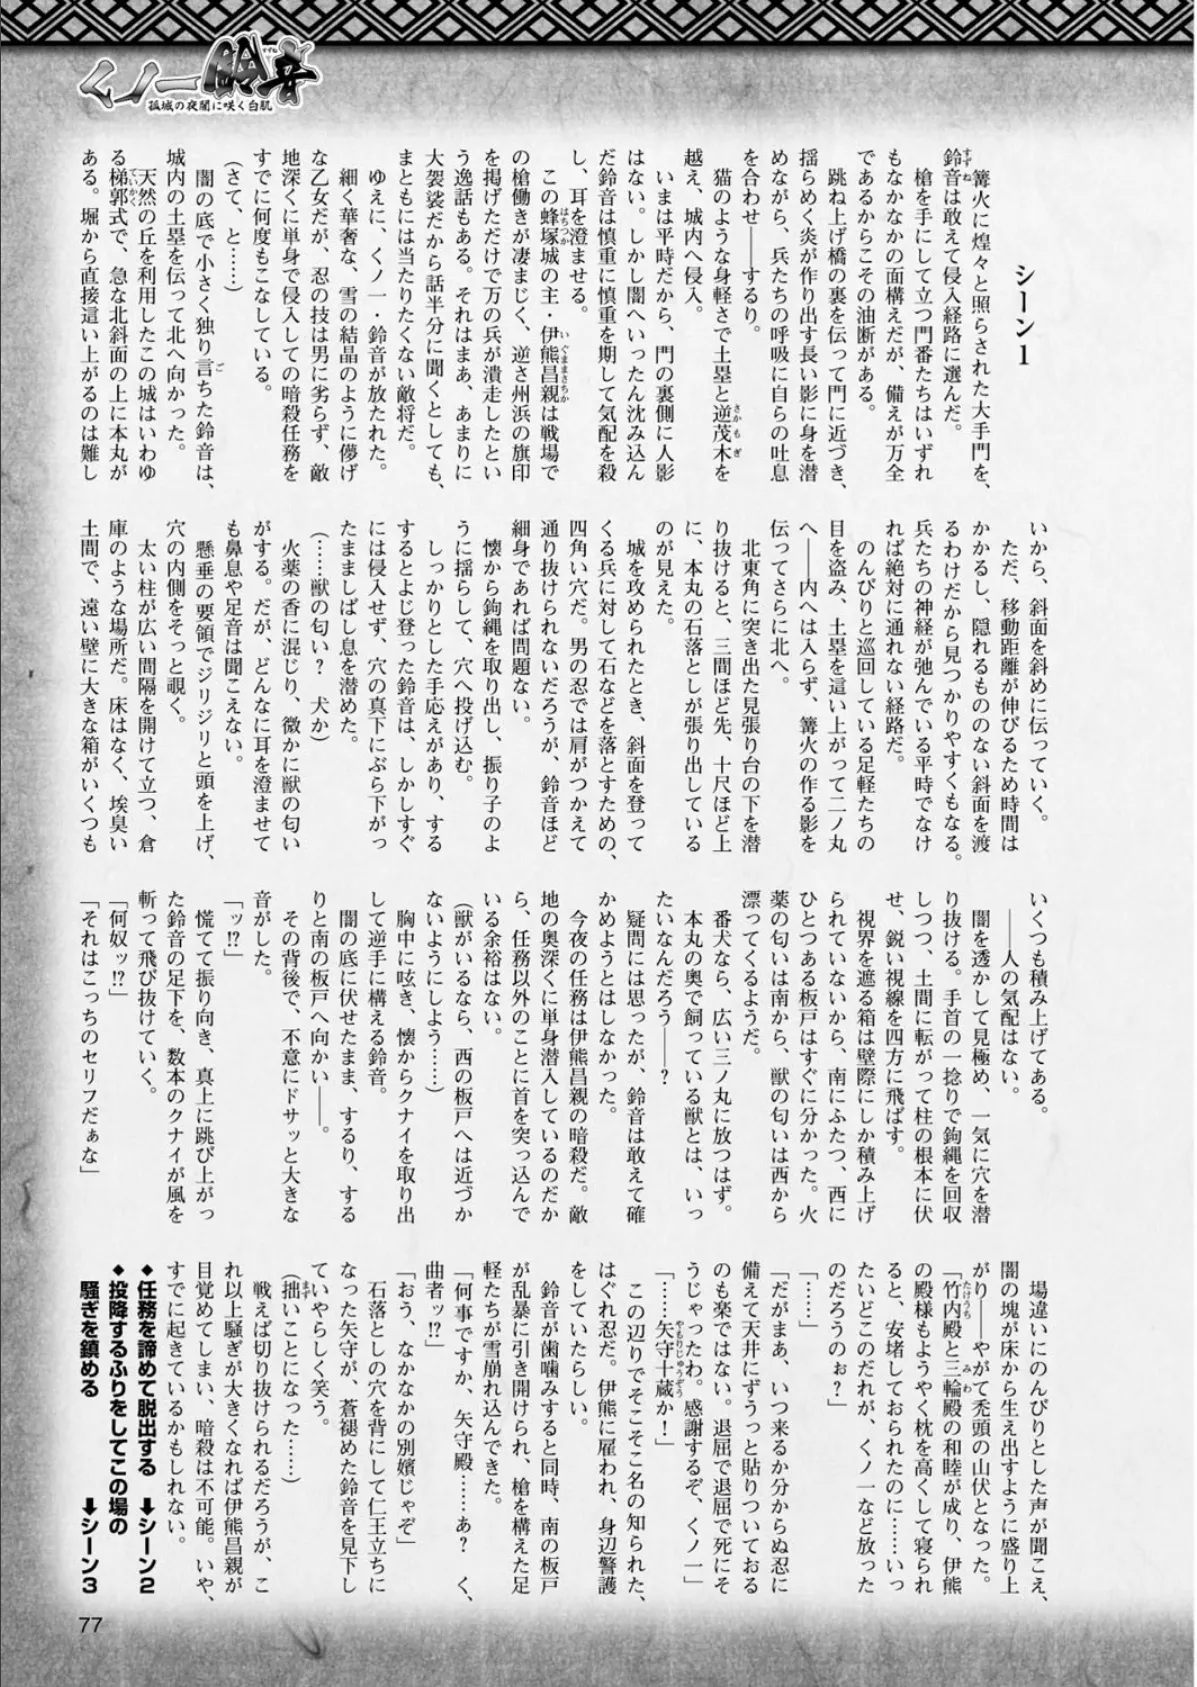 くノ一鈴音
すずね
孤城の夜闇に咲く白肌
シーン1
篝火に煌々と照らされた大手門を、
鈴音は敢えて侵入経路に選んだ。
槍を手にして立つ門番たちはいずれ
もなかなかの面構えだが、備えが万全
であるからこそその油断がある。
跳ね上げ橋の裏を伝って門に近づき、
揺らめく炎が作り出す長い影に身を潜
めながら、兵たちの呼吸に自らの吐息
を合わせ――するり。
猫のような身軽さで土塁と逆茂木を
越え、城内へ侵入。
いまは平時だから、門の裏側に人影
はない。しかし闇へいったん沈み込ん
だ鈴音は慎重に慎重を期して気配を殺
し、耳を澄ませる。
この蜂塚城の主・伊熊昌親は戦場で
の槍働きが凄まじく、逆さ州浜の旗印
を掲げただけで万の兵が潰走したとい
う逸話もある。それはまあ、あまりに
大袈裟だから話半分に聞くとしても、
まともには当たりたくない敵将だ。
ゆえに、くノ一・鈴音が放たれた。
細く華奢な、雪の結晶のように儚げ
な乙女だが、忍の技は男に劣らず、敵
地深くに単身で侵入しての暗殺任務を
すでに何度もこなしている。
(さて、と……)
闇の底で小さく独り言ちた鈴音は、
城内の土塁を伝って北へ向かった。
天然の丘を利用したこの城はいわゆ
る梯郭式で、急な北斜面の上に本丸が
ある。堀から直接這い上がるのは難し
いから、斜面を斜めに伝っていく。
ただ、移動距離が伸びるため時間は
かかるし、隠れるもののない斜面を渡
るわけだから見つかりやすくもなる。
兵たちの神経が弛んでいる平時でなけ
れば絶対に通れない経路だ。
のんびりと巡回している足軽たちの
目を盗み、土塁を這い上がって二ノ丸
へ――内へは入らず、篝火の作る影を
伝ってさらに北へ。
北東角に突き出た見張り台の下を潜
り抜けると、三間ほど先、十尺ほど上
に、本丸の石落としが張り出している
のが見えた。
城を攻められたとき、斜面を登って
くる兵に対して石などを落とすための、
四角い穴だ。男の忍では肩がつかえて
通り抜けられないだろうが、鈴音ほど
細身であれば問題ない。
懐から鉤縄を取り出し、振り子のよ
うに揺らして、穴へ投げ込む。
しっかりとした手応えがあり、する
するとよじ登った鈴音は、しかしすぐ
には侵入せず、穴の真下にぶら下がっ
たまましばし息を潜めた。
(……獣の匂い? 犬か)
火薬の香に混じり、微かに獣の匂い
がする。だが、どんなに耳を澄ませて
も鼻息や足音は聞こえない。
懸垂の要領でジリジリと頭を上げ、
穴の内側をそっと覗く。
太い柱が広い間隔を開けて立つ、倉
庫のような場所だ。床はなく、埃臭い
土間で、遠い壁に大きな箱がいくつも
いくつも積み上げてある。
――人の気配はない。
闇を透かして見極め、一気に穴を潜
り抜ける。手首の一捻りで鉤縄を回収
しつつ、土間に転がって柱の根本に伏
せ、鋭い視線を四方に飛ばす。
視界を遮る箱は壁際にしか積み上げ
られていないから、南にふたつ、西に
ひとつある板戸はすぐに分かった。火
薬の匂いは南から、獣の匂いは西から
漂ってくるようだ。
番犬なら、広い三ノ丸に放つはず。
本丸の奥で飼っている獣とは、いっ
たいなんだろう――?
疑問には思ったが、鈴音は敢えて確
かめようとはしなかった。
今夜の任務は伊熊昌親の暗殺だ。敵
地の奥深くに単身潜入しているのだか
ら、任務以外のことに首を突っ込んで
いる余裕はない。
(獣がいるなら、西の板戸へは近づか
ないようにしよう……)
胸中に呟き、懐からクナイを取り出
して逆手に構える鈴音。
闇の底に伏せたまま、するり、する
りと南の板戸へ向かい――。
その背後で、不意にドサッと大きな
音がした。
「ッ!?」
慌てて振り向き、真上に跳び上がっ
た鈴音の足下を、数本のクナイが風を
斬って飛び抜けていく。
「何奴ッ!?」
「それはこっちのセリフだぁな」
場違いにのんびりとした声が聞こえ、
闇の塊が床から生え出すように盛り上
がり――やがて禿頭の山伏となった。
「竹内殿と三輪殿の和睦が成り、伊熊
の殿様もようやく枕を高くして寝られ
ると、安堵しておられたのに……いっ
たいどこのだれが、くノ一など放った
のだろうのぉ?」
「……」
「だがまあ、いつ来るか分からぬ忍に
備えて天井にずうっと貼りついておる
のも楽ではない。退屈で退屈で死にそ
うじゃったわ。感謝するぞ、くノ一」
「……矢守十蔵か!」
この辺りでそこそこ名の知られた、
はぐれ忍だ。伊熊に雇われ、身辺警護
をしていたらしい。
鈴音が歯噛みすると同時、南の板戸
が乱暴に引き開けられ、槍を構えた足
軽たちが雪崩れ込んできた。
「何事ですか、矢守殿……あ? く、
曲者ッ!?」
「おう、なかなかの別嬪じゃぞ」
石落としの穴を背にして仁王立ちに
なった矢守が、蒼褪めた鈴音を見下し
ていやらしく笑う。
(拙いことになった……)
戦えば切り抜けられるだろうが、こ
れ以上騒ぎが大きくなれば伊熊昌親が
目覚めてしまい、暗殺は不可能。いや、
すでに起きているかもしれない。
◆任務を諦めて脱出する ➡シーン2
◆投降するふりをしてこの場の
騒ぎを鎮める ➡シーン3
77